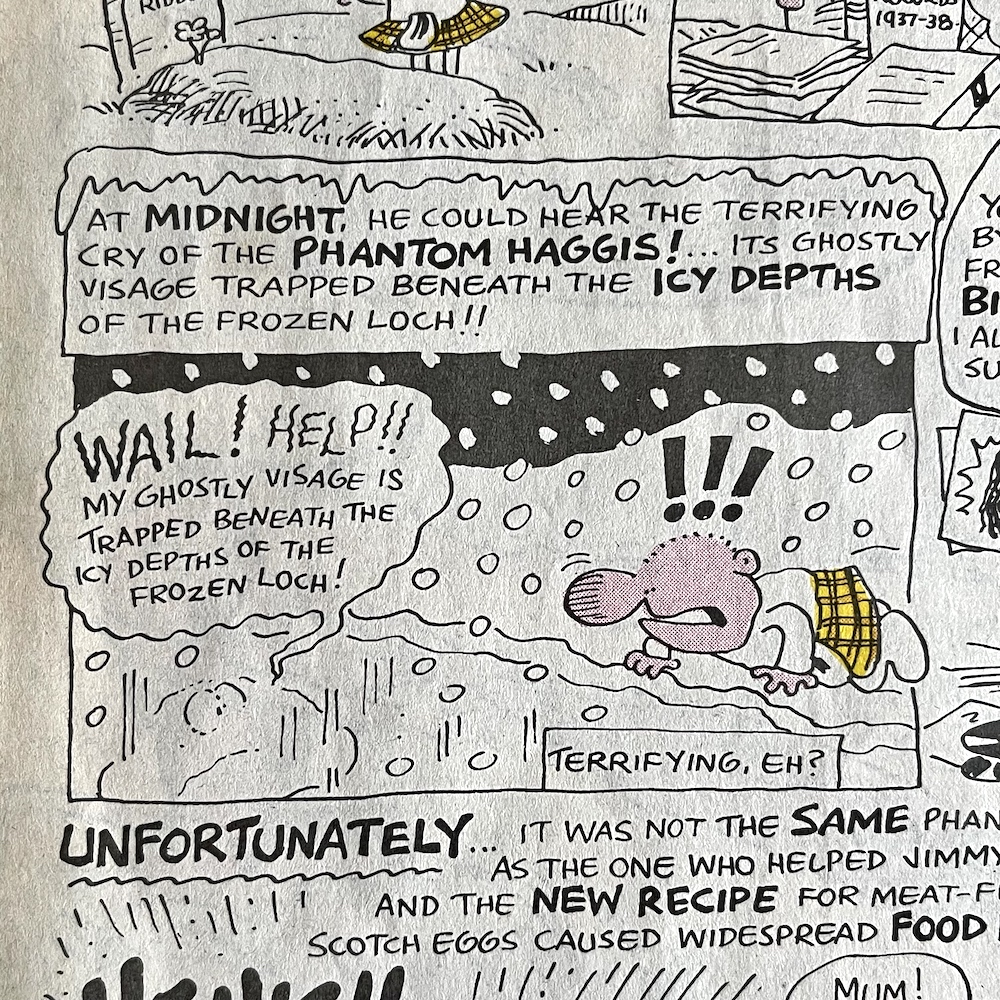 1937-38.
AT MIDNIGHT, HE COULD HEAR THE TERRIFYING
CRY OF THE PHANTOM HAGGIS!... ITS GHOSTLY
VISAGE TRAPPED BENEATH THE ICY DEPTHS
OF THE FROZEN LOCH!!
WAIL! HELP!!
MY GHOSTLY VISAGE IS
TRAPPED BENEATH THE
ICY DEPTHS OF THE
FROZEN LOCH!
!!!
TERRIFYING, EH?
I
UNFORTUNATELY... IT WAS NOT THE SAME
AS THE ONE WHO HELPED JIMMY
AND THE NEW RECIPE FOR
SCOTCH EGGS CAUSED WIDESPREAD FOOD
MUM!